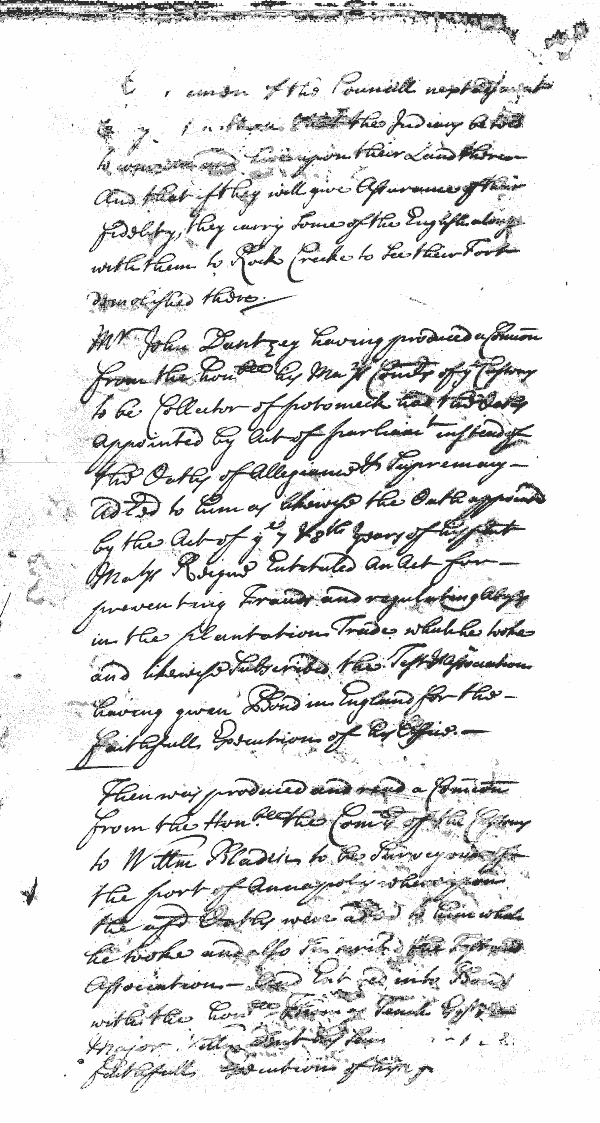 of the Councill next
the Indians be told
to upon their Land there
And that if they will give Assurance of their
fidelity, they carry some of the English along
with them to Rock Creeke to see their Fort
demolished there.
Mr John Dantzey having produced a Comicon
from the honble his Matys Comrs of ye Customs
to be Collector of Potomeck had the Oaths
appointed by Act of Parliamt instead of
the Oaths of Allegiance & Supremacy
ad̃ed to him as likewise the Oath appointed
by the Act of ye 7 & 8th Years of his prest
Matys Reigne Entituled An Act for
preventing Frauds and regulating Abuses
in the plantation Trade which he tooke
and likewise Subscribed the Test & Association
having given Bond in England for the
faithfull Execution of his Office.
Then was produced and read a Comicon
from the Honble the Comrs of the Customs
to Willm Bladen to be Surveyour of
the port of Annapolis whereupon
the afd Oaths were to him which
he tooke and also the
Association And Ent ed into Bond
with the honble Tench Esqr
Major Willm
faithfull Execution of his